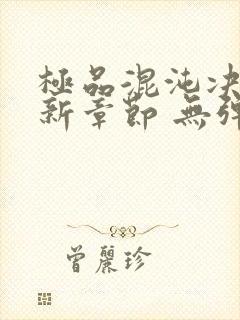 極品混沌決
新章節 無彈
曾麗珍